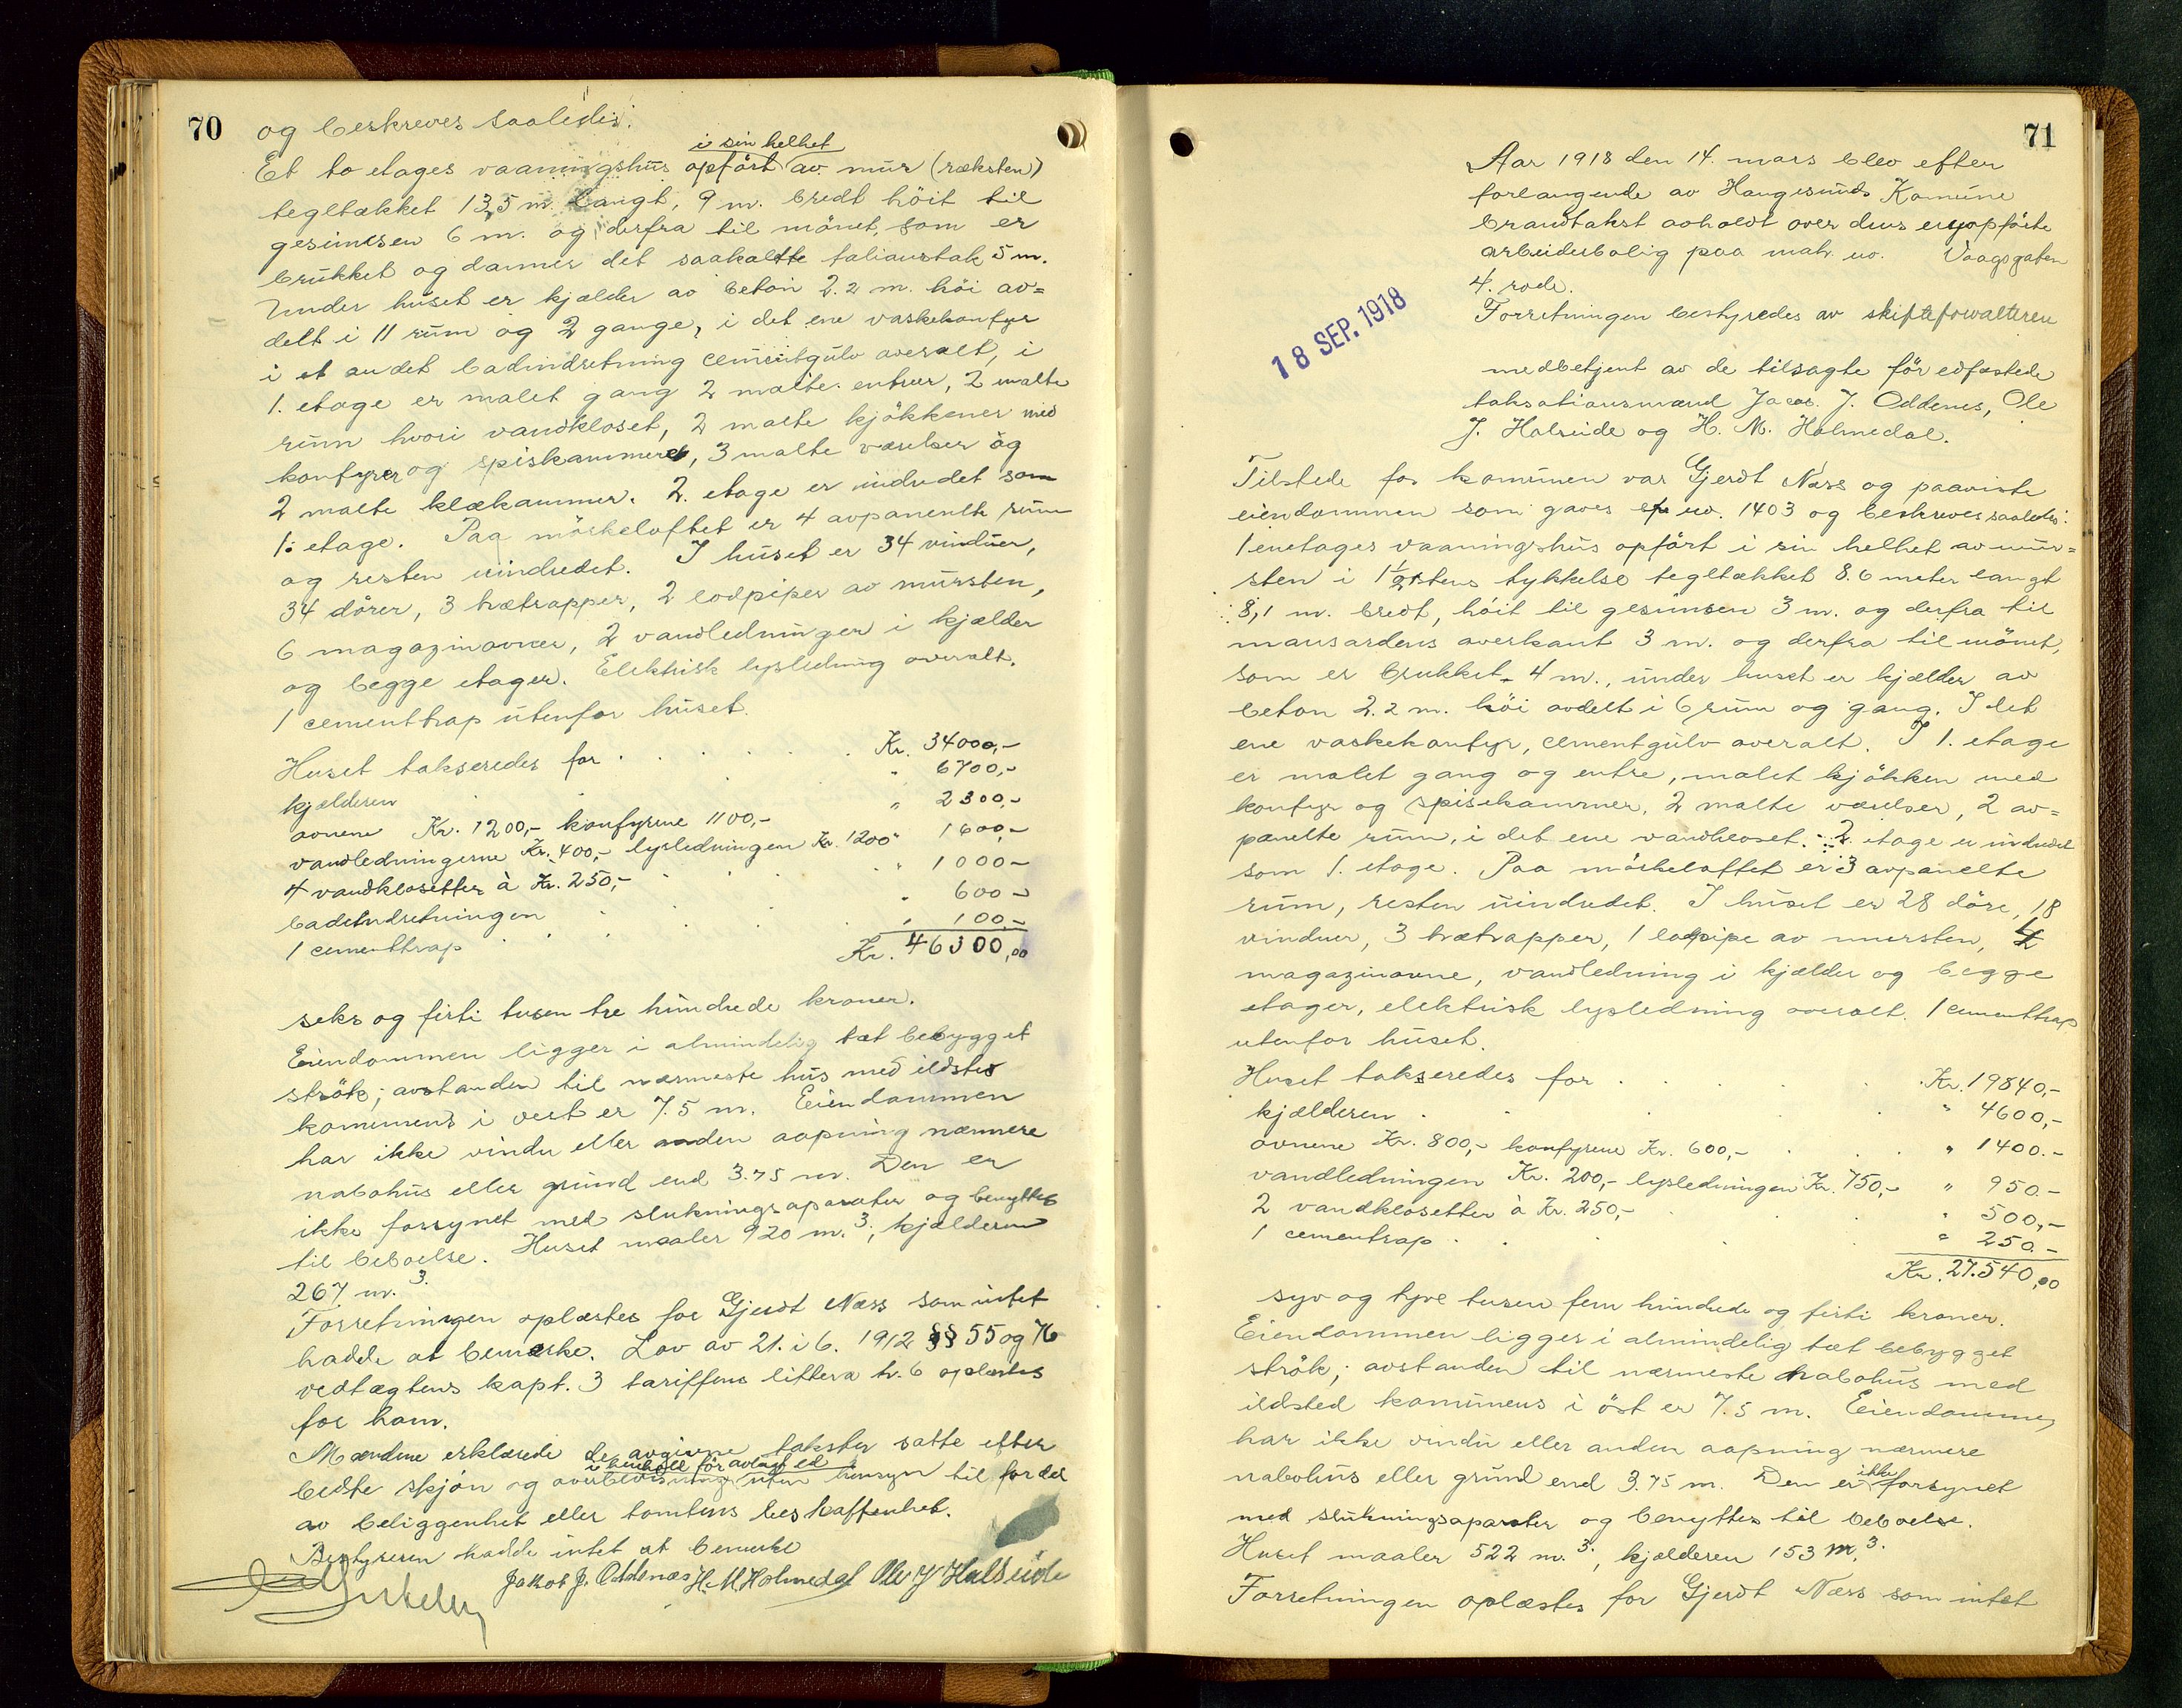 70
og beskreves saaledes:
i sin helhet
Et to etages vaaningshus opført av mur (ræksten)
tegltækket 13,5 m. langt, 9 m. bredt høit til
gesimsen 6 m. og derfra til mønet, som er
brukket og danner det saakaldte talianstak 5 m.
Under huset er kjælder av beton 2.2 m. høi av=
delt i 11 rum og 2 gange, i det ene vaskekomfyr
i et andet badindretning cementgulv overalt, i
1. etage er malet gang 2 malte entreer, 2 malte
rum hvori vandkloset, 2 malte kjøkkener med
komfyrer og spiskammer, 3 malte værelser og
2 malte klækammer. 2. etage er indredet som
1. etage. Paa mørkeloftet er 4 avpanelte rum
og resten uindredet. I huset er 34 vinduer,
34 dører, 3 trætrapper, 2 lodpiper av mursten,
6 magazinovner, 2 vandledninger i kjælder
og begge etager. Elektrisk lysledning overalt.
1 cementtrap utenfor huset.
Huset takseredes for . . . . Kr. 34000,-
kjælderen " 6700,-
ovnene Kr. 1200,- komfyrene 1100,- " 2300,-
vandledningerne Kr. 400,- lysledningen Kr. 1200 " 1600,-
4 vandklosetter à Kr. 250,- . . " 1000-
badeindretningen . . . " 600-
1 cementtrap . . . " 100,-
Kr. 46300,00
seks og firti tusen tre hundrede kroner.
Eiendommen ligger i almindelig tæt bebygget
strøk; avstanden til nærmeste hus med ildsted
kommunens i vest er 7.5 m. Eiendommen
har ikke vindu eller anden aapning nærmere
nabohus eller grund end 3.75 m. Den er
ikke forsynet med slukningsaparater og benyttes
til beboelse. Huset maaler 920 m.3; kjælderen
267 m.3
Forretningen oplæstes for Gjerdt Næss som intet
hadde at bemerke. Lov av 21. i 6. 1912 §§ 55 og 76
vedtægtens kapt. 3 tariffens littera tr. 6 oplæstes
for ham.
Mændene erklærede de avgivne takster satte efter
i henhold før avlagt ed
bedste skjøn og overbevisning uten hensyn til fordel
av beliggenhet eller tomtens beskaffenhet.
Bestyreren hadde intet at bemerke
Jakob J. Oddenæs H. M Holmedal Ole J Halseide
71
Aar 1918 den 14. mars blev efter
forlangende av Haugesunds Komune
brandtakst avholdt over dens nyopførte
arbeiderbolig paa matr. no. Vaagsgaten
4. rode.
Forretningen bestyredes av skifteforvalteren
18 SEP. 1918
medbetjent av de tilsagte før edfæstede
taksationsmænd Jacob J. Oddenes, Ole
J. Halseide og H. M. Holmedal.
Tilstede for komunen var Gjerdt Næss og paaviste
eiendommen som gaves no. 1403 og beskreves saaledes:
1 enetages vaaningshus opført i sin helhet av mur=
sten i 1 1/2 stens tykkelse tegltækket 8.6 meter langt
8,1 m. bredt, høit til gesimsen 3 m. og derfra til
mansardens overkant 3 m. og derfra til mønet,
som er brukket 4 m., under huset er kjælder av
beton 2.2 m. høi avdelt i 6 rum og gang. I det
ene vaskekomfyr, cementgulv overalt. I 1. etage
er malet gang og entre, malet kjøkken med
komfyr og spisekammer, 2 malte værelser, 2 av=
panelte rum, i det ene vandkloset. 2. etage er indredet
som 1. etage. Paa mørkeloftet er 3 avpanelte
rum, resten uindredet. I huset er 28 døre, 18
vinduer, 3 trætrapper, 1 lodpipe av mursten, 4
magazinovne, vandledning i kjælder og begge
etager, elektrisk lysledning overalt. 1 cementtrap
utenfor huset.
Huset takseredes for . . . . Kr. 19840,-
kjælderen . . . " 4600,-
ovnene Kr. 800,- komfyrene Kr. 600,- . . . " 1400.-
vandledningen Kr. 200,- lysledningen Kr. 750,- " 950.-
2 vandklosetter à Kr. 250,- . . " 500,-
1 cementrap . . . . " 250.-
Kr. 27.540,00
syv og tyve tusen fem hundrede og firti kroner.
Eiendommen ligger i almindelig tæt bebygget
strøk; avstanden til nærmeste nabohus med
ildsted kommunens i øst er 7.5 m. Eiendommen
har ikke vindu eller anden aapning nærmere
nabohus eller grund end 3.75 m. Den er ikke forsynet
med slukningsaparater og benyttes til beboelse.
Huset maaler 522 m.3; kjælderen 153 m.3
Forretningen oplæstes for Gjerdt Næss som intet